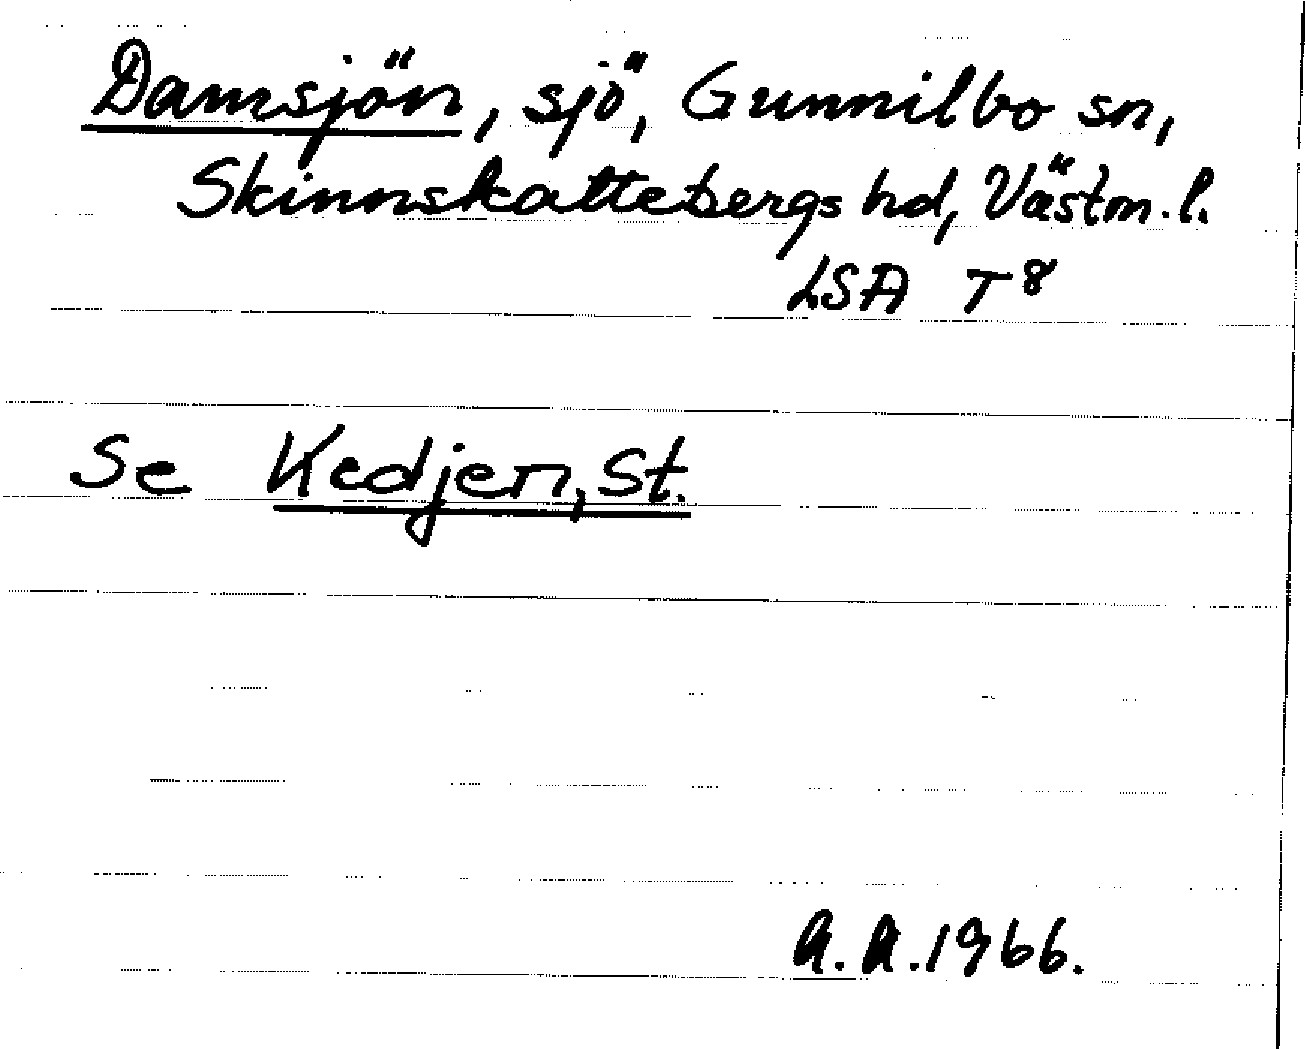 Damsjön, sjö, Gunnilbo sn,
Skinnskattebergs hd, Västm. l.
LSA T 8
Se Kedjen, St.
A.A.1966.